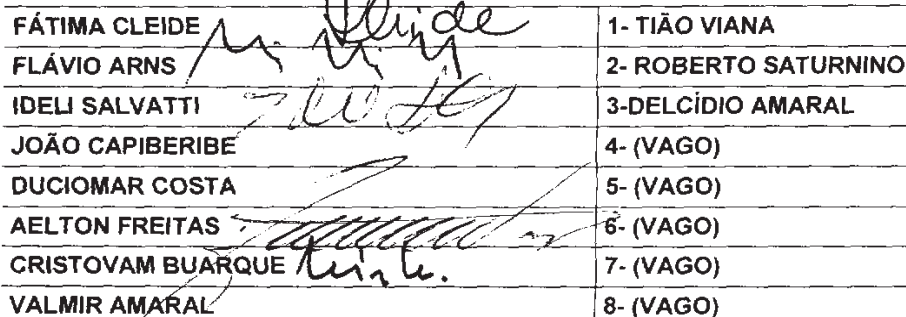 FÁTIMA CLEIDE Cleide 1- TIÃO VIANA
FLÁVIO ARNS 2- ROBERTO SATURNINO
IDELI SALVATTI 3-DELCÍDIO AMARAL
JOÃO CAPIBERIBE 4- (VAGO)
DUCIOMAR COSTA 5- (VAGO)
AELTON FREITAS 6- (VAGO)
CRISTOVAM BUARQUE 7- (VAGO)
VALMIR AMARAL 8- (VAGO)